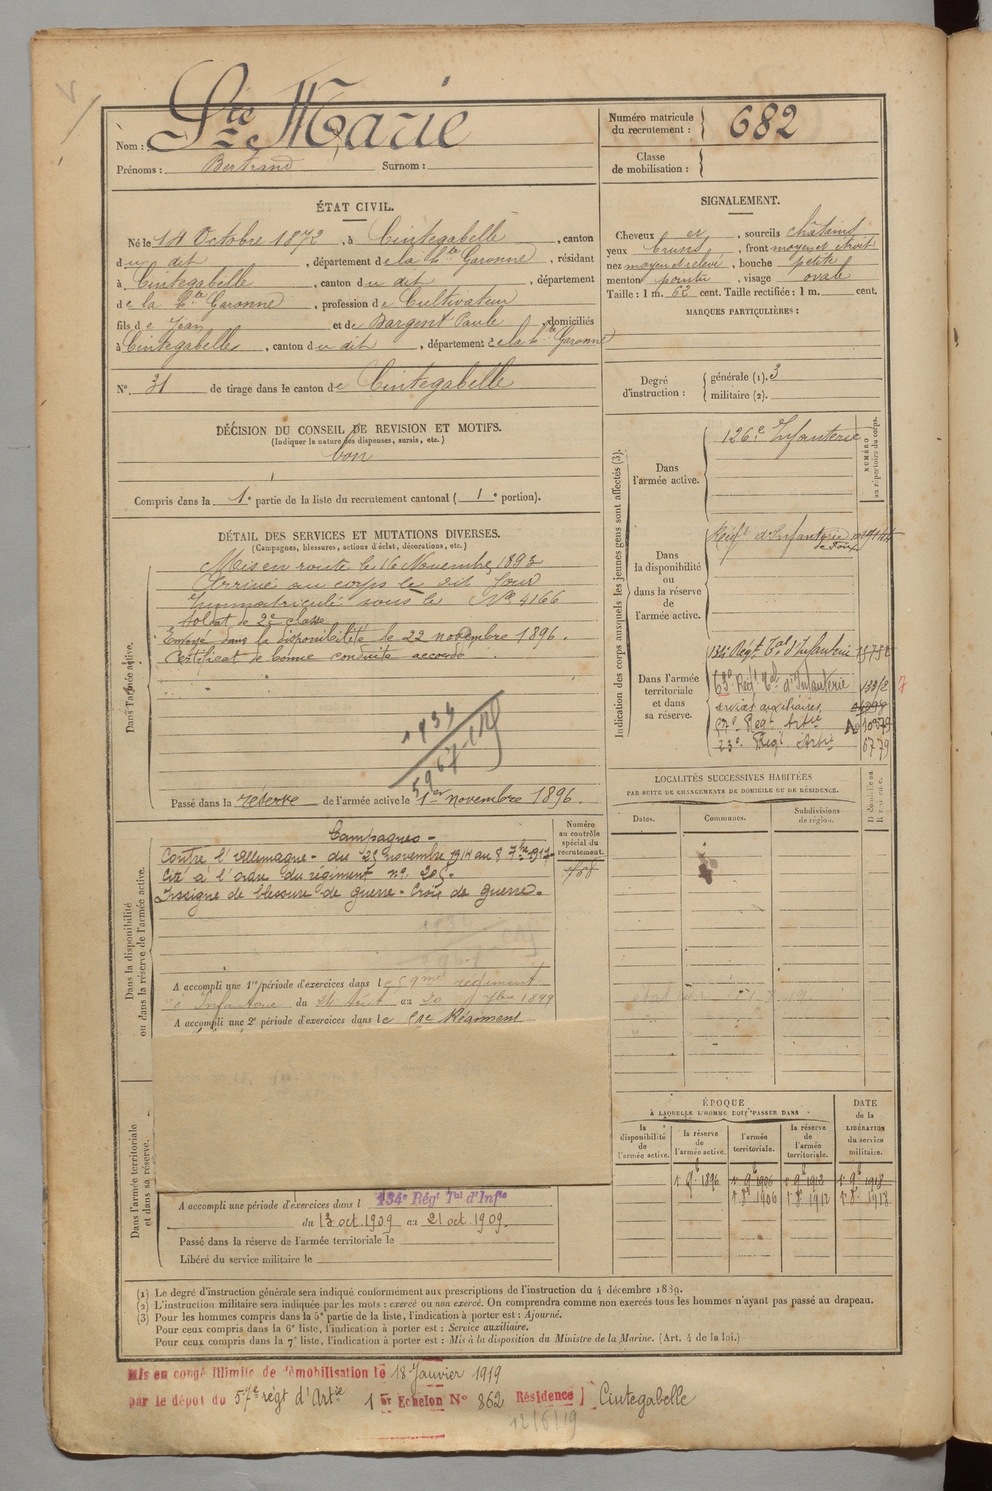 Nom : Ste Marie
Prénoms : Bertrand Surnom :
Numéro matricule
du recrutement : 682
Classe
de mobilisation :
ÉTAT CIVIL.
Né le 14 Octobre 1872, à Cintegabelle, canton
du dit, département de la Hte Garonne, résidant
à Cintegabelle, canton du dit, département
de la Hte Garonne, profession de Cultivateur
fils de Jean et de Bargent Paule, domiciliés
à Cintegabelle, canton du dit, département de la Hte Garonne
No. 31 de tirage dans le canton de Cintegabelle
SIGNALEMENT.
Cheveux et, sourcils châtains
yeux bruns, front moyen et droit
nez moyen et relevé, bouche petite
menton pointu, visage ovale
Taille : 1 m. 62 cent. Taille rectifiée : 1 m. cent.
MARQUES PARTICULIÈRES :
Degré
d'instruction :
générale (1). 3
militaire (2).
DÉCISION DU CONSEIL DE REVISION ET MOTIFS.
(Indiquer la nature des dispenses, sursis, etc.)
bon
Compris dans la 1e partie de la liste du recrutement cantonal ( 1e portion).
DÉTAIL DES SERVICES ET MUTATIONS DIVERSES.
(Campagnes, blessures, actions d'éclat, décorations, etc.)
Dans l'armée active.
Mis en route le 16 Novembre 1893
Arrivé au corps le dit Jour
Immatriculé sous le No 4166
Soldat de 2e classe
Envoyé dans la disponibilité le 22 novembre 1896.
Certificat de bonne conduite accordé
1934
5967
Passé dans la réserve de l'armée active le 1er novembre 1896.
Indication des corps auxquels les jeunes gens sont affectés (3).
NUMÉRO
au répertoire du corps.
Dans
l'armée active.
126e Infanterie
Dans
la disponibilité
ou
dans la réserve
de
l'armée active.
Régt d'Infanterie
de Foix
Dans l'armée
territoriale
et dans
sa réserve.
134e Régt Tal d'Infanterie
63e Régt Tal d'Infanterie
services auxiliaires
57e Regt Artie
23e Regt Artie 6779
LOCALITÉS SUCCESSIVES HABITÉES
PAR SUITE DE CHANGEMENTS DE DOMICILE OU DE RÉSIDENCE.
Dates.
Communes.
Subdivisions
de région.
Dans la disponibilité
ou dans la réserve de l'armée active.
Numéro
au contrôle
spécial du
recrutement.
Campagnes -
Contre l'Allemagne - du 25 novembre 1914 au 8 7bre 1917 -
Cité à l'ordre du régiment no 205.
Insigne de blessure de guerre - Croix de guerre -
A accompli une 1re période d'exercices dans le 59me régiment
d'Infanterie du 24 Aout au 20 7bre 1899
A accompli une 2e période d'exercices dans le Régiment
Dans l'armée territoriale
et dans sa réserve.
A accompli une période d'exercices dans l 134e Rég' Tal d'Infie
du 13 oct. 1909 au 21 oct. 1909.
Passé dans la réserve de l'armée territoriale le
Libéré du service militaire le
ÉPOQUE
À LAQUELLE L'HOMME DOIT PASSER DANS
DATE
de la
LIBÉRATION
du service
militaire.
la
disponibilité
de
l'armée active.
la réserve
de
l'armée active.
l'armée
territoriale.
la réserve
de
l'armée
territoriale.
1er 9bre 1896 1er 9bre 1906 1er 9bre 1912 1er 9bre 1918
(1) Le degré d'instruction générale sera indiqué conformément aux prescriptions de l'instruction du 4 décembre 1889.
(2) L'instruction militaire sera indiquée par les mots : exercé ou non exercé. On comprendra comme non exercés tous les hommes n'ayant pas passé au drapeau.
(3) Pour les hommes compris dans la 5e partie de la liste, l'indication à porter est : Ajourné.
Pour ceux compris dans la 6e liste, l'indication à porter est : Service auxiliaire.
Pour ceux compris dans la 7e liste, l'indication à porter est : Mis à la disposition du Ministre de la Marine. (Art. 4 de la loi.)
Mis en congé illimité de démobilisation le 18 Janvier 1919
par le dépôt du 57e régt d'Artie 1er Echelon No 862 Résidence Cintegabelle
12/6/19